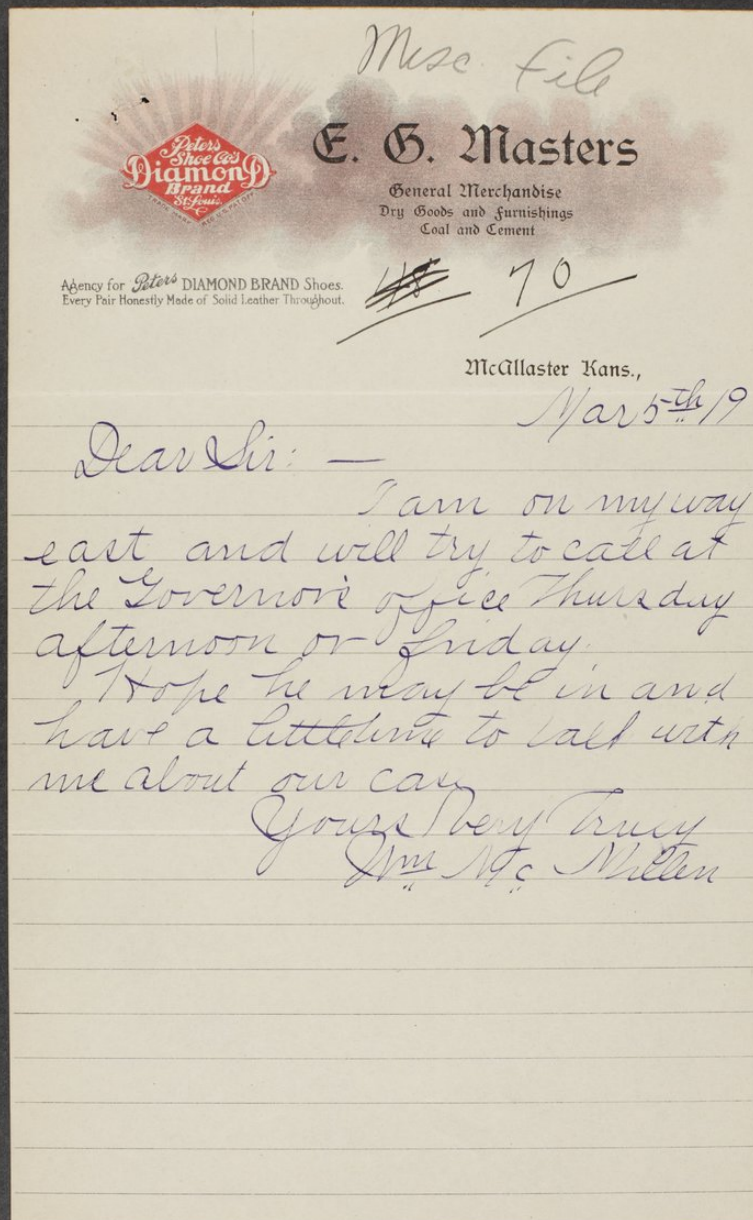 Misc. File
Peters
Shoe Co's
Diamond
Brand
St. Louis
TRADE MARK REG. U.S. PAT. OFF.
E. G. Masters
General Merchandise
Dry Goods and Furnishings
Coal and Cement
Agency for Peters DIAMOND BRAND Shoes.
Every Pair Honestly Made of Solid Leather Throughout.
70
McAllaster Kans.,
Mar 5th 19
Dear Sir: —
I am on my way
east and will try to call at
the Governor's office Thursday
afternoon or friday.
Hope he may be in and
have a little time to talk with
me about our case
Yours Very Truly
Wm Mc Millen